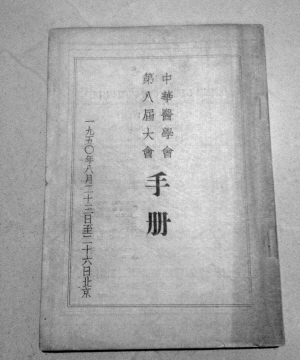 中華醫學會
第八屆大會
手册
一九五〇年八月二十三日至二十六日北京